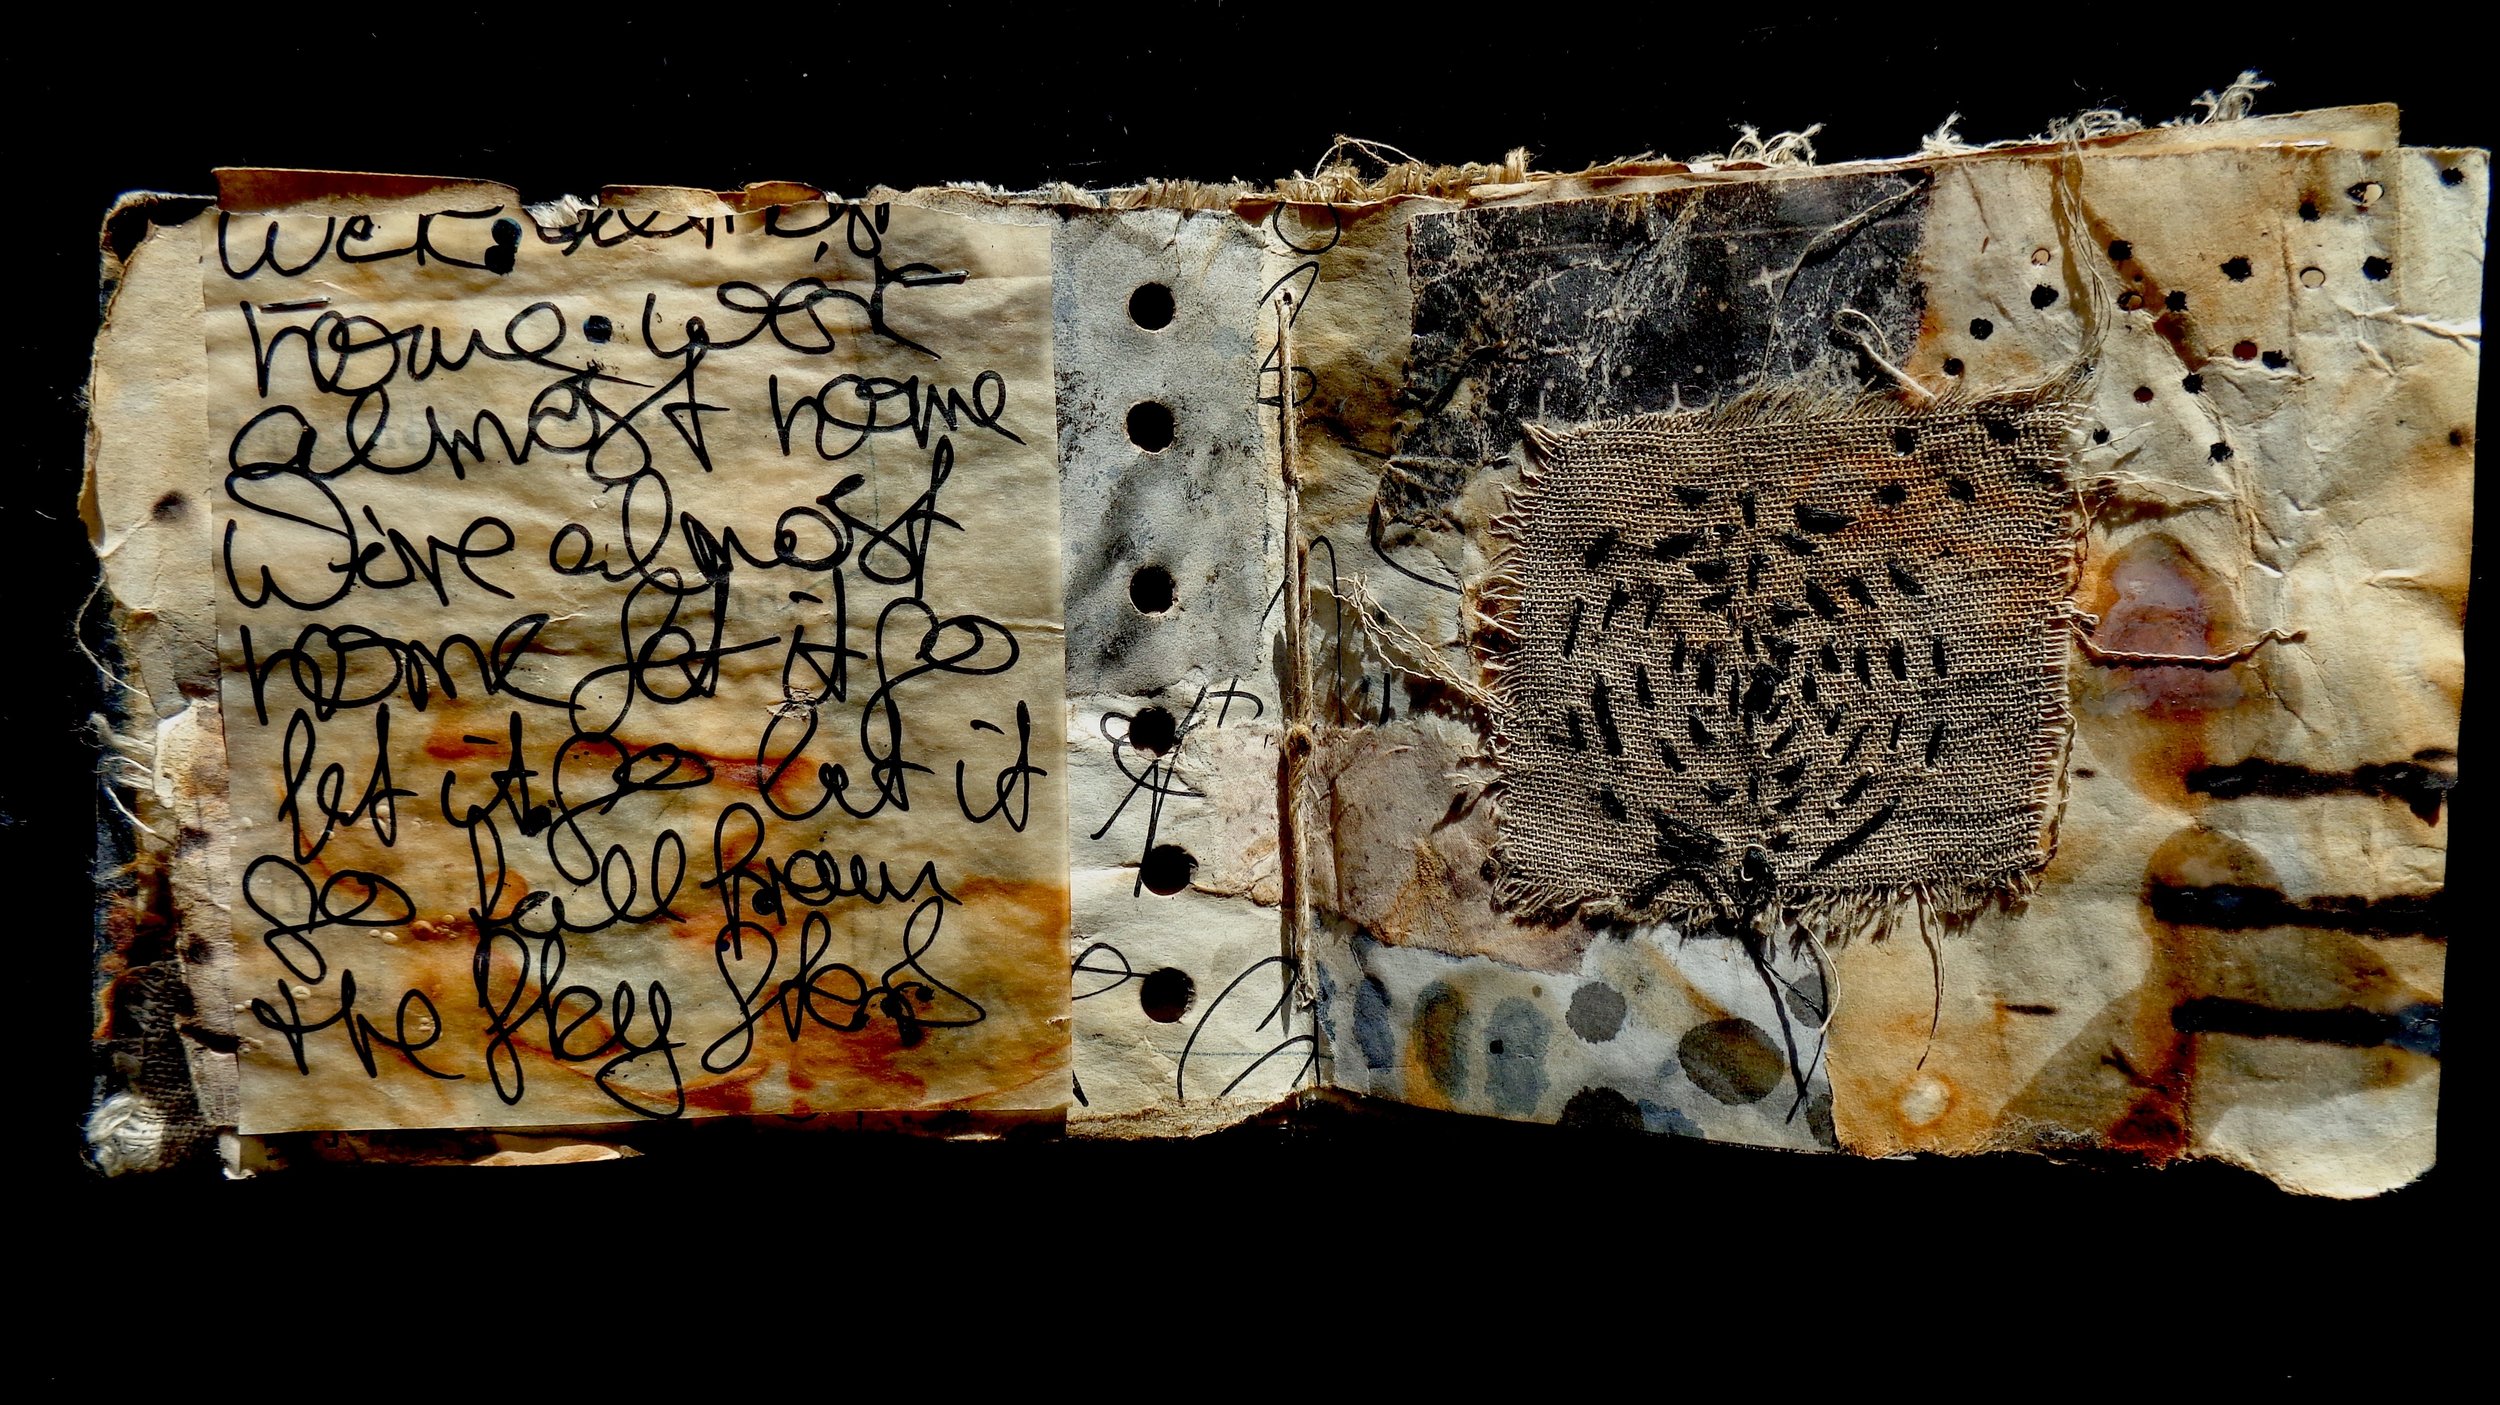 home. we're
almost home
We're almost
home let it go
let it go let it
go fall from
the sky